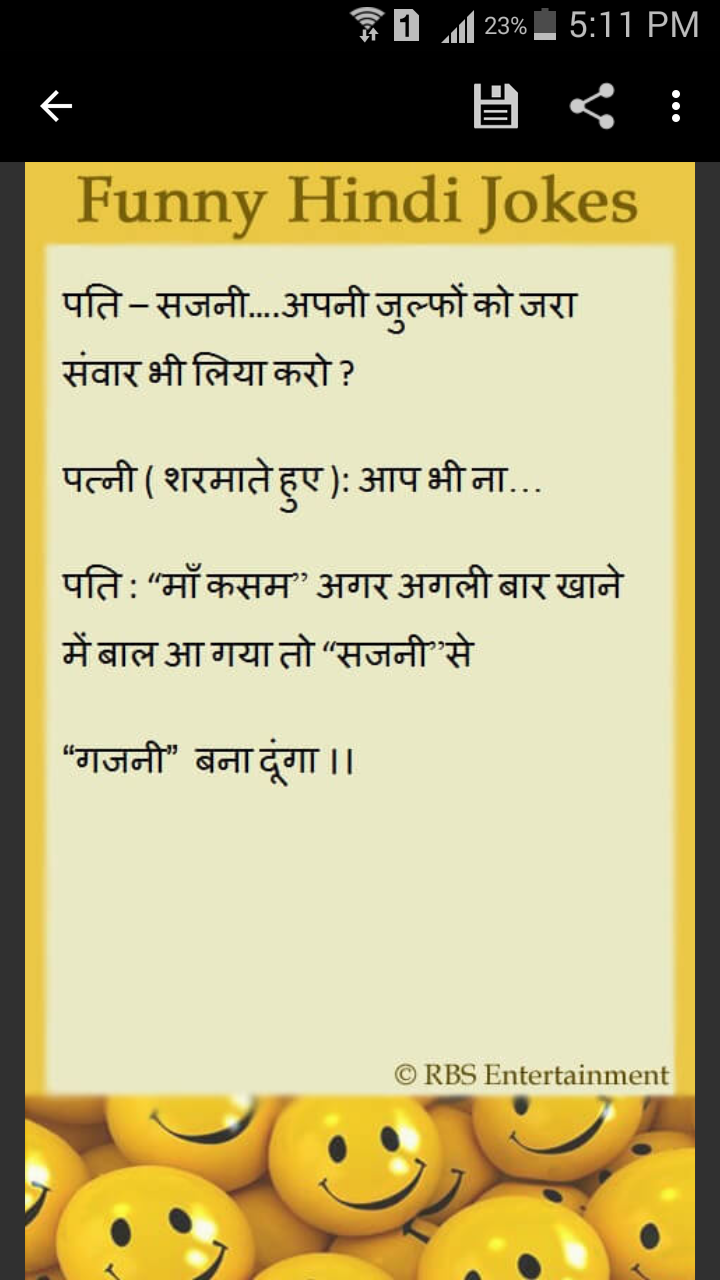 23% 5:11 PM
Funny Hindi Jokes
पति – सजनी....अपनी जुल्फों को जरा
संवार भी लिया करो ?
पत्नी ( शरमाते हुए ): आप भी ना...
पति : “माँ कसम” अगर अगली बार खाने
में बाल आ गया तो “सजनी”से
“गजनी” बना दूंगा ।।
© RBS Entertainment